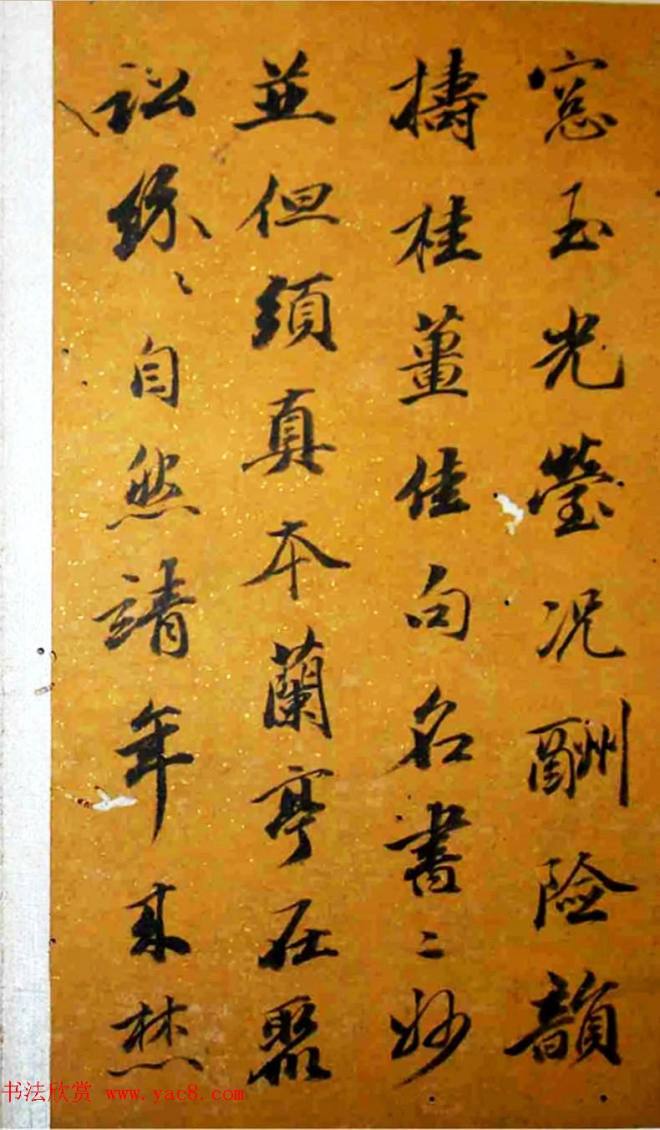 窓玉光瑩況酬險韻
擣桂薑佳句名書二妙
並但須真本蘭亭在聚
訟紛〻自然靖年來
书法欣赏 www.yac8.com